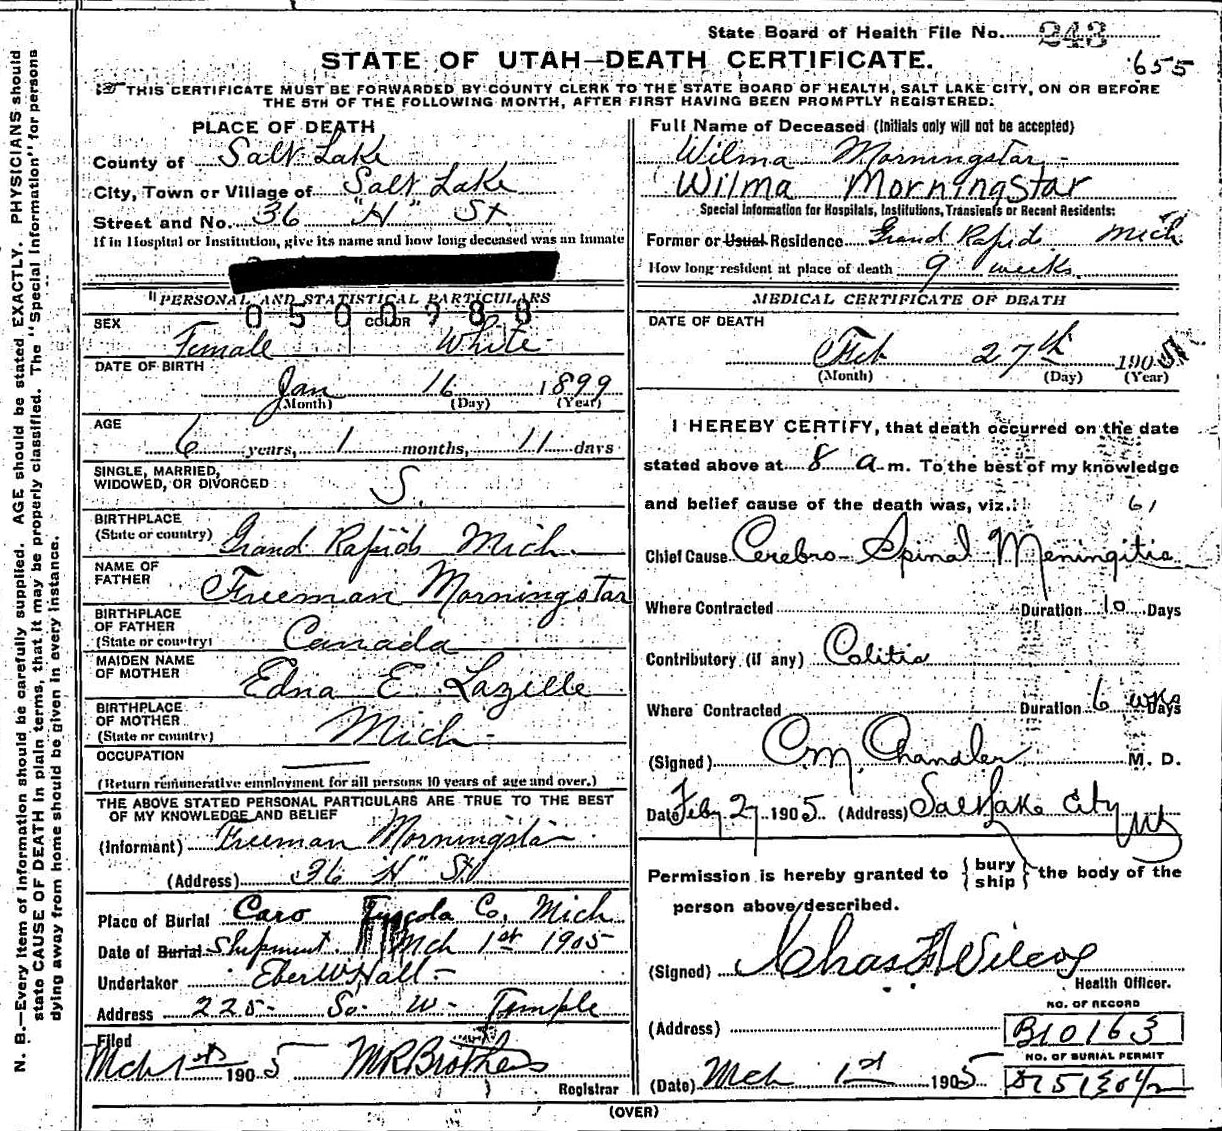 N. B.—Every Item of Information should be carefully supplied. AGE should be stated EXACTLY. PHYSICIANS should
state CAUSE OF DEATH in plain terms, that it may be properly classified. The "Special Information" for persons
dying away from home should be given in every instance.
State Board of Health File No. 243
STATE OF UTAH—DEATH CERTIFICATE.
655
THIS CERTIFICATE MUST BE FORWARDED BY COUNTY CLERK TO THE STATE BOARD OF HEALTH, SALT LAKE CITY, ON OR BEFORE
THE 5TH OF THE FOLLOWING MONTH, AFTER FIRST HAVING BEEN PROMPTLY REGISTERED.
PLACE OF DEATH
County of Salt Lake
City, Town or Village of Salt Lake
Street and No. 36 "H" St
If in Hospital or Institution, give its name and how long deceased was an inmate
PERSONAL AND STATISTICAL PARTICULARS
0500988
SEX Female COLOR White
DATE OF BIRTH
Jan 16 1899
(Month) (Day) (Year)
AGE
6 years, 1 months, 11 days
SINGLE, MARRIED,
WIDOWED, OR DIVORCED S.
BIRTHPLACE
(State or country) Grand Rapids Mich.
NAME OF
FATHER Freeman Morningstar
BIRTHPLACE
OF FATHER
(State or country) Canada
MAIDEN NAME
OF MOTHER Edna E Lazelle
BIRTHPLACE
OF MOTHER
(State or country) Mich
OCCUPATION
(Return remunerative employment for all persons 10 years of age and over.)
THE ABOVE STATED PERSONAL PARTICULARS ARE TRUE TO THE BEST
OF MY KNOWLEDGE AND BELIEF
(Informant) Freeman Morningstar
(Address) 36 "H" St
Place of Burial Caro Tuscola Co. Mich
Date of Burial Shipment Mch 1st 1905
Undertaker Eber W Hall
Address 225 So. W. Temple
Filed
Mch 1st 1905 M R Brothers
Registrar
Full Name of Deceased (Initials only will not be accepted)
Wilma Morningstar
Wilma Morningstar
Special Information for Hospitals, Institutions, Transients or Recent Residents:
Former or Usual Residence Grand Rapids Mich.
How long resident at place of death 9 weeks.
MEDICAL CERTIFICATE OF DEATH
DATE OF DEATH
Feb 27th 1905
(Month) (Day) (Year)
I HEREBY CERTIFY, that death occurred on the date
stated above at 8 a m. To the best of my knowledge
and belief cause of the death was, viz.:
61
Chief Cause Cerebro-Spinal Meningitis
Where Contracted Duration 10 Days
Contributory (if any) Colitis
Where Contracted Duration 6 wks Days
(Signed) C. M. Chandler M. D.
Date Feby 27 1905 (Address) Salt Lake City Ut
Permission is hereby granted to { bury ship } the body of the
person above described.
(Signed) Chas F Wilcox
Health Officer.
NO. OF RECORD
(Address) B10163
NO. OF BURIAL PERMIT
(Date) Mch 1st 1905
(OVER)